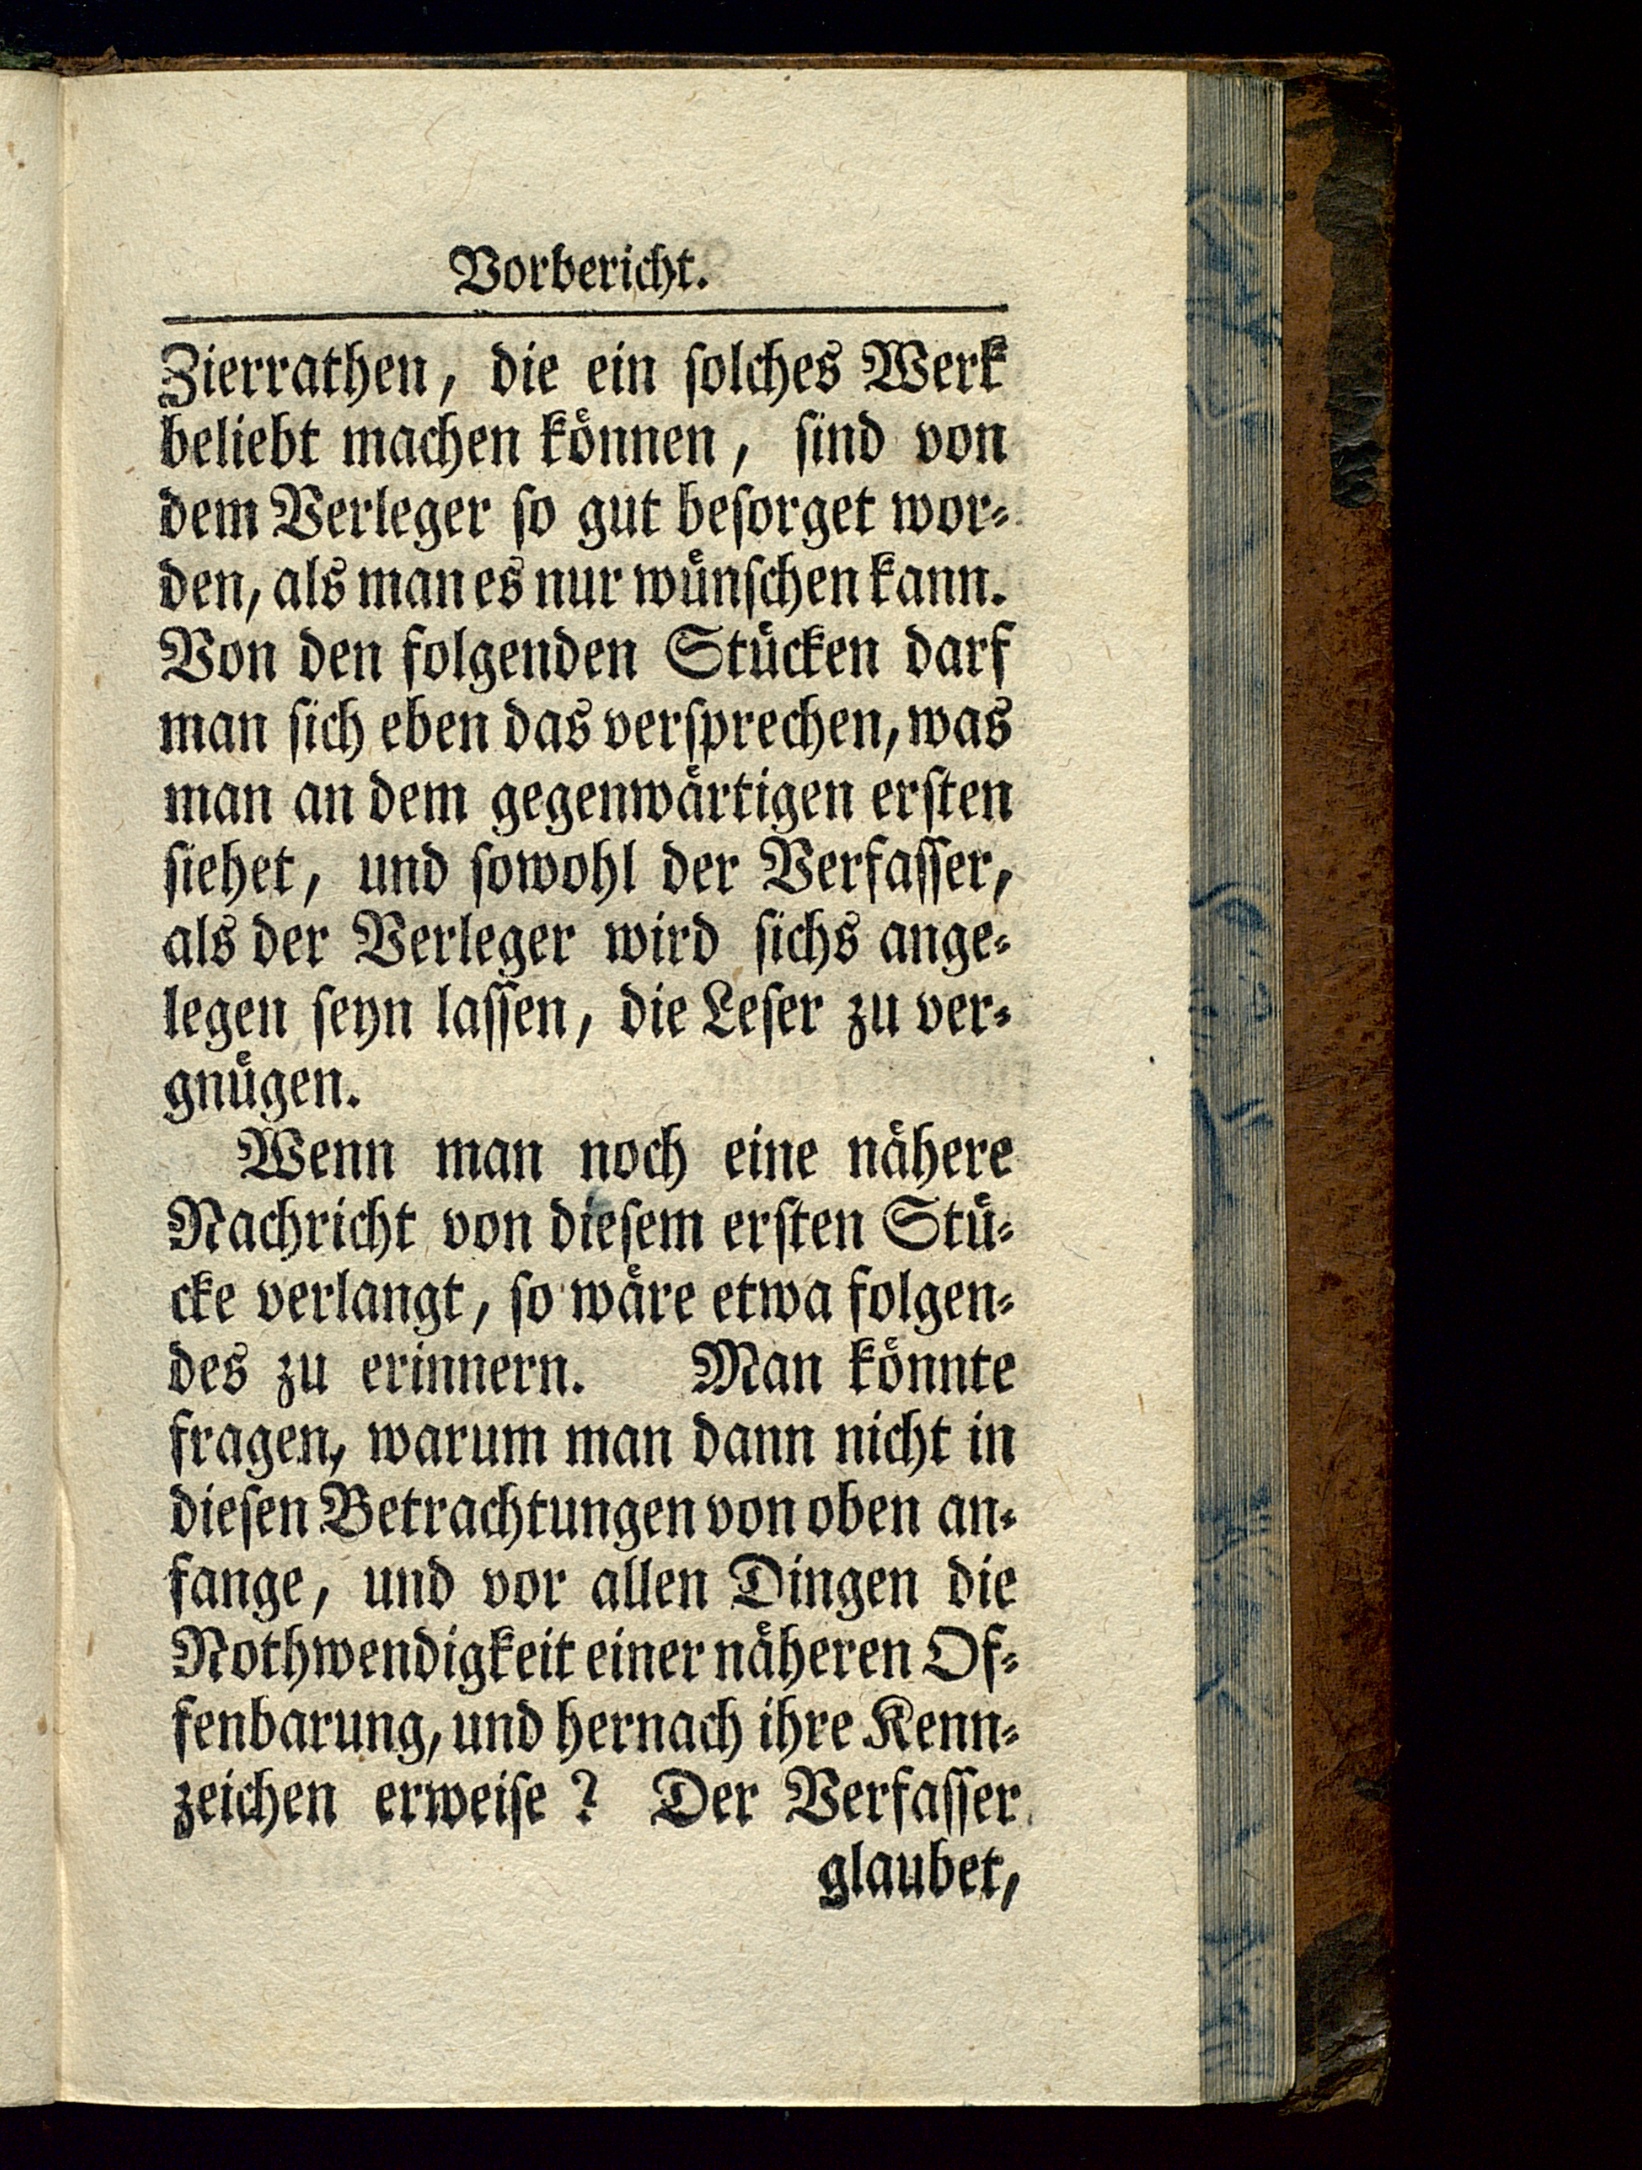 Vorbericht.
Zierrathen, die ein ſolches Werk
beliebt machen koͤnnen, ſind von
dem Verleger ſo gut beſorget wor⸗
den, als man es nur wuͤnſchen kann.
Von den folgenden Stuͤcken darf
man ſich eben das verſprechen, was
man an dem gegenwaͤrtigen erſten
ſiehet, und ſowohl der Verfaſſer,
als der Verleger wird ſichs ange⸗
legen ſeyn laſſen, die Leſer zu ver⸗
gnuͤgen.
Wenn man noch eine naͤhere
Nachricht von dieſem erſten Stuͤ⸗
cke verlangt, ſo waͤre etwa folgen⸗
des zu erinnern. Man koͤnnte
fragen, warum man dann nicht in
dieſen Betrachtungen von oben an⸗
fange, und vor allen Dingen die
Nothwendigkeit einer naͤheren Of⸗
fenbarung, und hernach ihre Kenn⸗
zeichen erweiſe? Der Verfaſſer
glaubet,